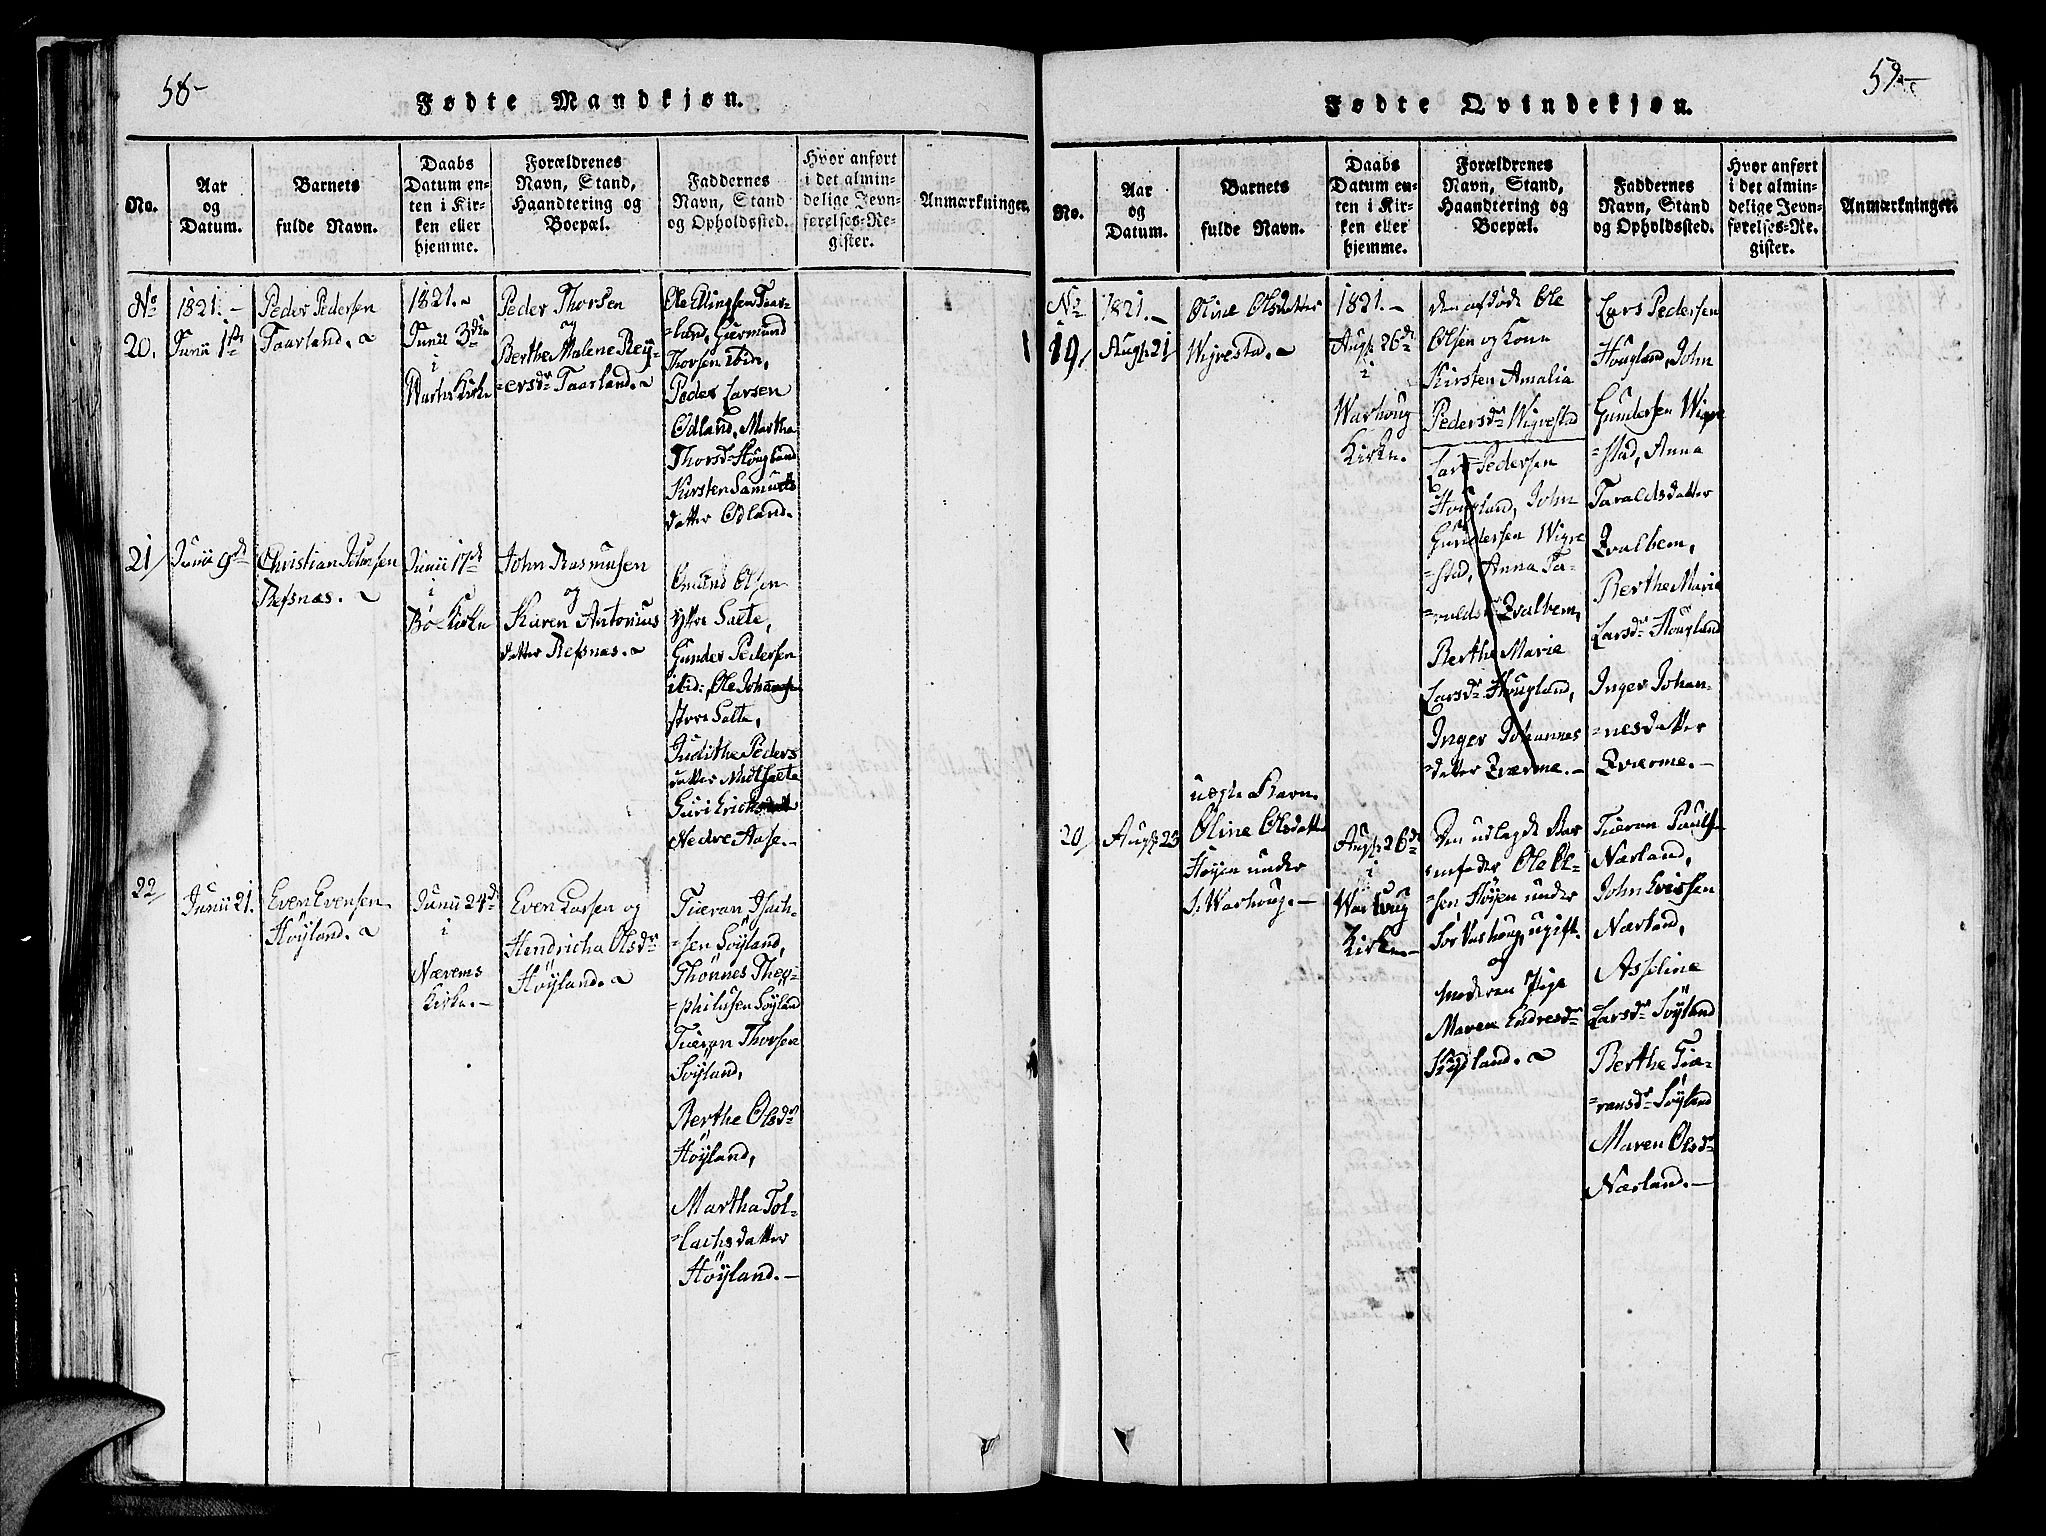 58-
Fødte Mandkjøn.
No.
Aar
og
Datum.
Barnets
fulde Navn.
Daabs
Datum en-
ten i Kir-
ken eller
hjemme.
Forældrenes
Navn, Stand,
Haandtering og
Boepæl.
Faddernes
Navn, Stand
og Opholdssted.
Hvor anført
i det almin-
delige Jevn-
førelses-Re-
gister.
Anmærkninger.
No
20.
1821.-
Junii 1ste
Peder Pedersen
Taarland.
1821.
Junii 3die
i
Kirke
Peder Thorsen
og
Berthe Malene Rey-
=ersdr Taarland.
Ole Ellingsen Taar-
=land, Gurmund
Thorsen ibid.,
Peder Larsen
Ødland, Martha
Thorsdr Hougland
Kirsten Samuels
datter Ødland.
21/
Junii 9de
Christian Johnsen
Refsnæs.
Junii 17de
i
Bøe Kirke
John Rasmusen
og
Karen Antonius
datter Refsnæs.
Omund Olsen
Salte,
Gunder Pedersen
ibid:, Ole Johannesen
Salte,
Judithe Peders
datter Midtsalte
Guri
Nedre Aase.-
22/
Junii 21.
Even Evensen
Höyland.
Junii 24de
i
Nærems
Kirke.-
Even Larsen og
Hendricha Olsdr
Höyland.
Tiæran Isach-
=sen Söyland,
Thönnes Theo-
=philusen Söyland
Tiæran Thorsen
Söyland,
Berthe Olsdr
Höyland,
Martha Tol-
=lachsdatter
Höyland.-
59
Fødte Qvindekjøn.
No.
Aar
og
Datum.
Barnets
fulde Navn.
Daabs
Datum en-
ten i Kir-
ken eller
hjemme.
Forældrenes
Navn, Stand,
Haandtering og
Boepæl.
Faddernes
Navn, Stand
og Opholdssted.
Hvor anført
i det almin-
delige Jevn-
førelses-Re-
gister.
Anmærkninger.
No
19/
1821.-
Augst 21
Oline Olsdatter
Wigrestad.
1821.-
Augst 26de
i
Warhoug
Kirke.
den afdöde Ole
Olsen og Kone
Kirsten Amalia
Pedersdr Wigrestad
Lars Pedersen
Hougland, John
Gundersen Wigre
=stad, Anna Ta-
=raldsdr Qvalbem,
Berthe Marie
Larsdr Hougland,
Inger Johannes
datter Qværme.-
Lars Pedersen
Hougland, John
Gundersen Wigre
=stad, Anna
Taraldsdatter
Qvalbem,
Berthe Marie
Larsdr Hougland
Inger Johan-
=nesdatter
Qværme.-
20/
Augst 23
uægte Barn
Oline Olsdatter
Höyen under
S. Warhoug.-
Augst 26de
i
Warhoug
Kirke.-
Den udlagde Bar
=nefader Ole Ol-
=sen Höyen under
Sör Varhoug, ugift.
og
moderen Pige
Maren Endresdr
Tiæran Pauls
Nærland,
John Eriksen
Nærland,
Asseline
Larsdr Söyland
Berthe Tiæ-
=ransdr Söyland
Maren Olsdr
Nærland.-